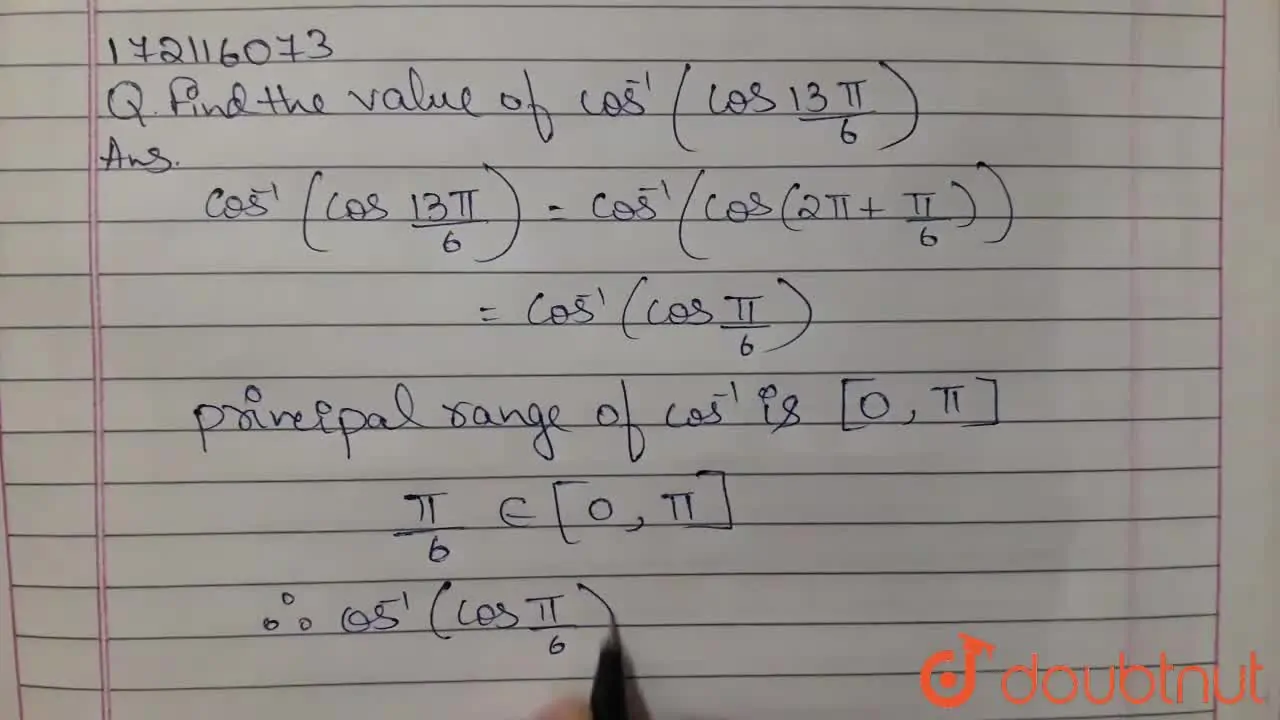 172116073
Q. Find the value of cos⁻¹(cos 13π/6)
Ans.
cos⁻¹(cos 13π/6) = cos⁻¹(cos(2π + π/6))
= cos⁻¹(cos π/6)
principal range of cos⁻¹ is [0, π]
π/6 ∈ [0, π]
∴ cos⁻¹(cos π/6)
doubtnut